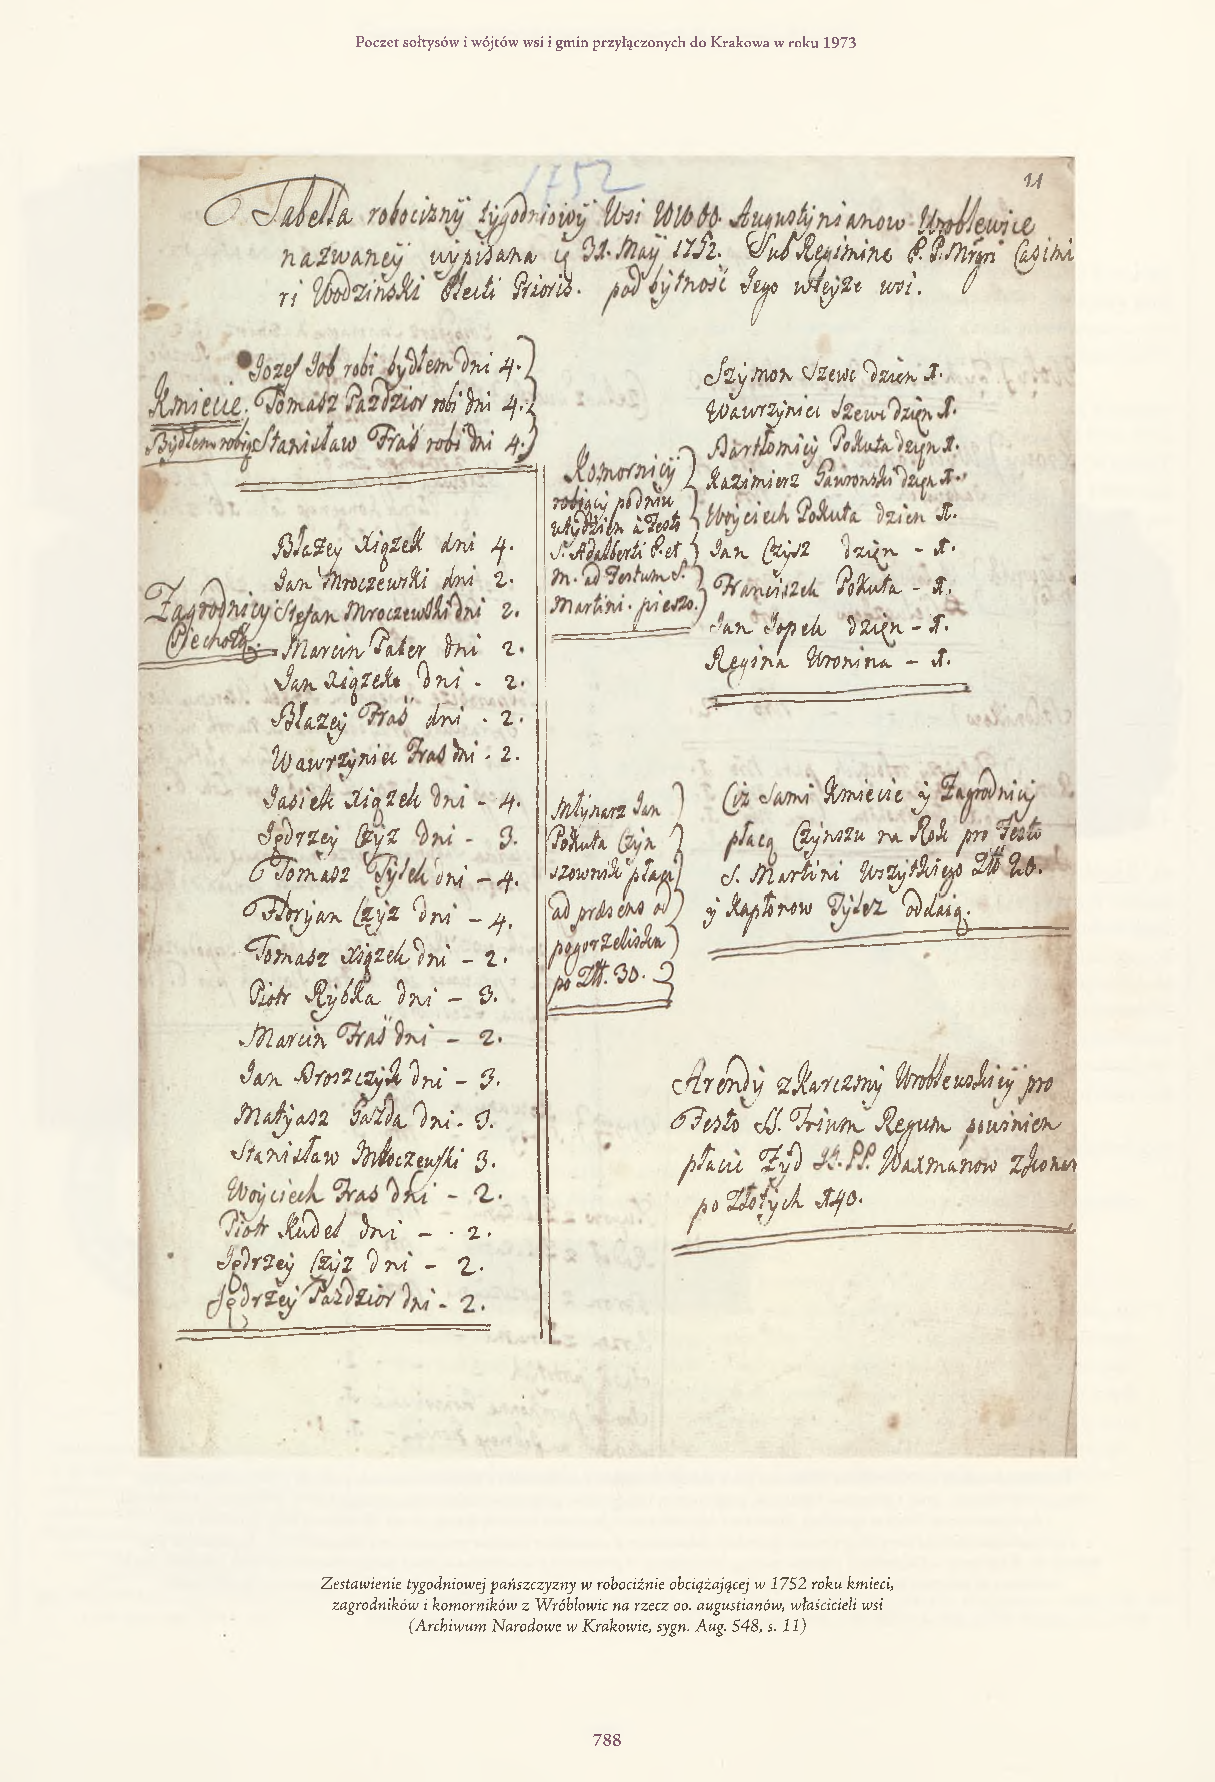 Poczet sołtysów i wójtów wsi i gmin przyłączonych do Krakowa w roku 1973
1752
11
Tabella robocizny tygodniowy Wsi WW OO. Augustynianow Wroblewice
nazwaney wypisana 31. May 1752. Sub Regimine Casimi
ri Wodzinski Electi Prioris. pod bytność Jego wteyze wsi.
Kmiecie.
Bydłem robią
Jozef Job robi bydłem dni 4.
Tomasz Pazdzior robi dni 4.
Stanisław Fraś robi dni 4.
Zagrodnicy
Piechotą.
Błazey Xiązek dni 4.
Jan Mroczewski dni 2.
Stefan Mroczewski dni 2.
Marcin Pater dni 2.
Jan Xiązek dni - 2.
Błazey Fraś dni - 2.
Wawrzyniec Fraś dni - 2.
Jasiek Xiązek dni - 4.
Jędrzey Czyz dni - 3.
Tomasz Tylek dni - 4.
Floryan Czyz dni - 4.
Tomasz Xiązek dni - 2.
Piotr Rybka dni - 3.
Marcin Fraś dni - 2.
Jan Broszczyk dni - 3.
Matyasz Gazda dni - 3.
Stanisław Mroczewski 3.
Woyciech Fraś dni - 2.
Piotr Kudel dni - 2.
Jędrzey Czyz dni - 2.
Jędrzey Pazdzior dni - 2.
Komornicy
robiący po dniu
w tydzien a Festo
S. Adalberti E. et
M. ad Festum S.
Martini. pieszo.
Szymon Szewc dzien 1.
Wawrzyniec Szewc dzięn 1.
Bartłomiey Pokuta dzięn 1.
Kazimierz Gawronski dzięn 1.
Woyciech Pokuta dzien 1.
Jan Czysz dzięn - 1.
Franciszek Pokuta - 1.
Jan Jopek dzięn - 1.
Regina Wronina - 1.
Młynarz Jan
Pokuta Czyn
szownik płaci
ad præsens od
pogorzeliska
po Złt. 30.
Ciz sami Kmiecie y Zagrodnicy
płacą Czynszu na Rok pro Festo
S. Martini Wszytkiego Złt 20.
y Kapłonow Tylez oddaią.
Arendy z Karczmy Wroblewskiey pro
Festo SS. Trium Regum powinien
płacic Zyd Waxmanow
po Złotych 140.
Zestawienie tygodniowej pańszczyzny w robociźnie obciążającej w 1752 roku kmieci,
zagrodników i komorników z Wróblowic na rzecz oo. augustianów, właścicieli wsi
(Archiwum Narodowe w Krakowie, sygn. Aug. 548, s. 11)
788